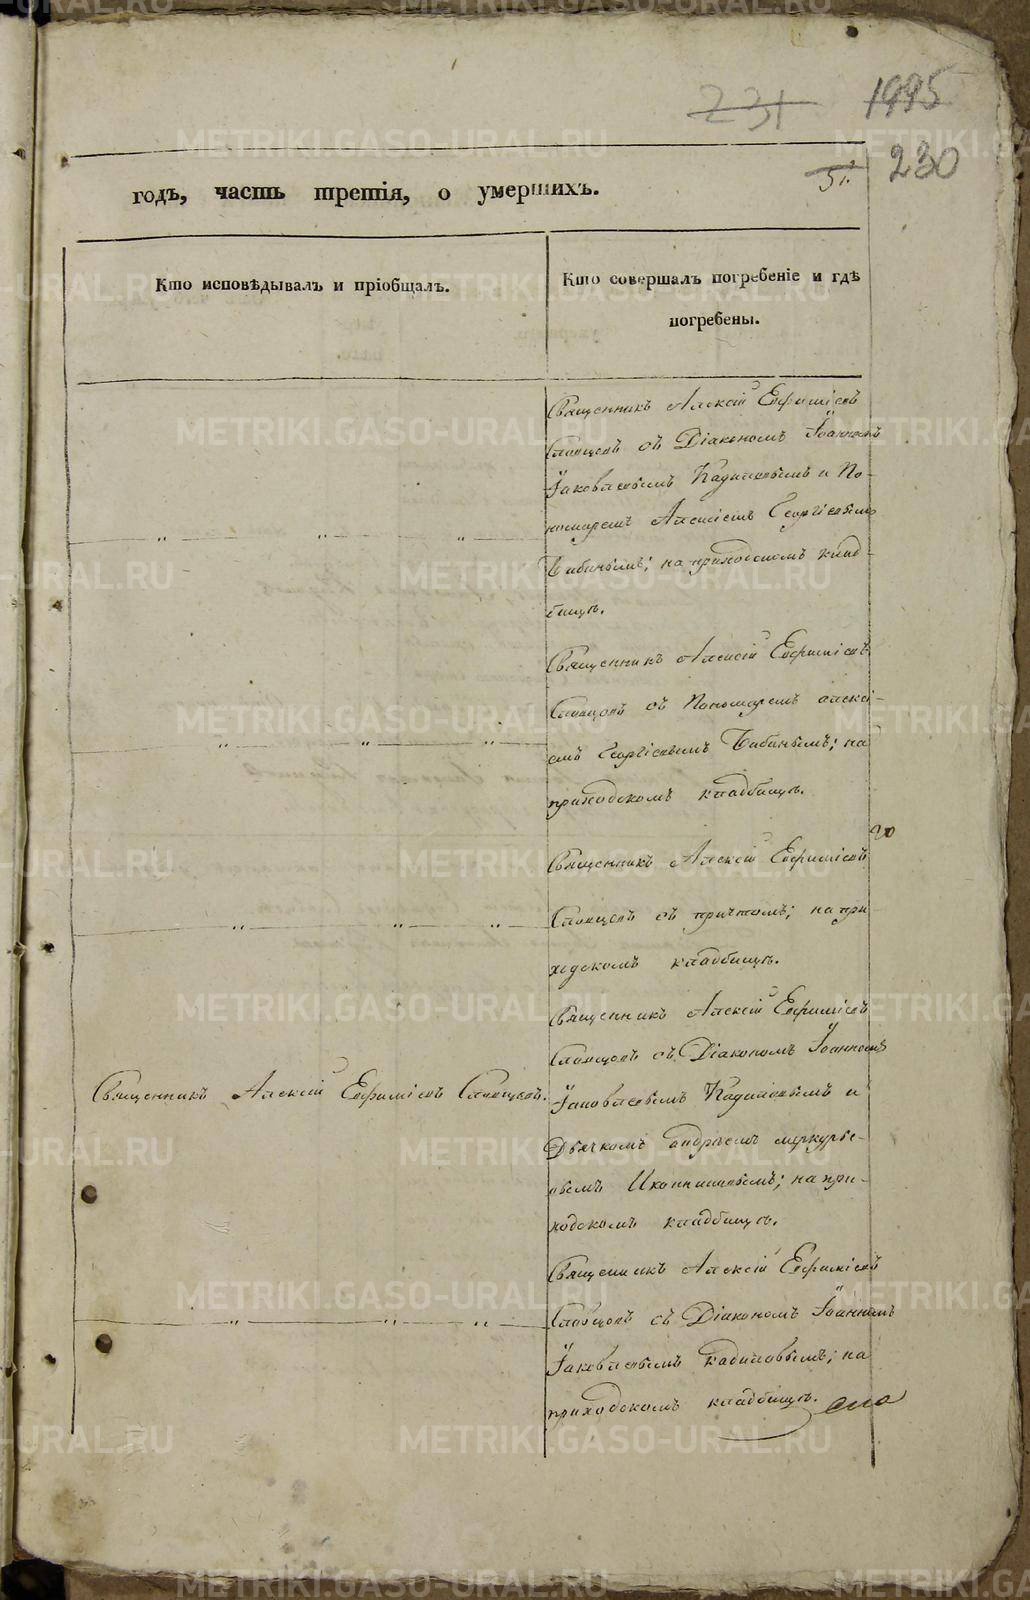 231
1995
51.
230
годъ, часть третія, о умершихъ.
Кто исповѣдывалъ и пріобщалъ.
Кто совершалъ погребеніе и гдѣ
погребены.
Священникъ Алексій Евфиміевъ
Словцовъ съ Діакономъ Іоанномъ
Іаковлевымъ Кадиловымъ и По-
номаремъ Алексіемъ Георгіевымъ
Бабинымъ; на приходскомъ клад-
бищѣ.
Священникъ Алексій Евфиміевъ
Словцовъ съ Пономаремъ алексі-
емъ Георгіевымъ Бабинымъ; на
приходскомъ кладбищѣ.
Священникъ Алексій Евфиміевъ
Словцовъ съ причтомъ; на при-
ходскомъ кладбищѣ.
Священникъ Алексій Евфиміевъ
Словцовъ съ Діакономъ Іоанномъ
Священникъ Алексій Евфиміевъ Словцовъ.
Іаковлевымъ Кадиловымъ и
Дьячкомъ андреемъ меркурье-
вымъ Иконниковымъ; на при-
ходскомъ кладбищѣ.
Священникъ Алексій Евфиміевъ
Словцовъ съ Діакономъ Іоанномъ
Іаковлевымъ Кадиловымъ; на
приходскомъ кладбищѣ.
METRIKI.GASO-URAL.RU